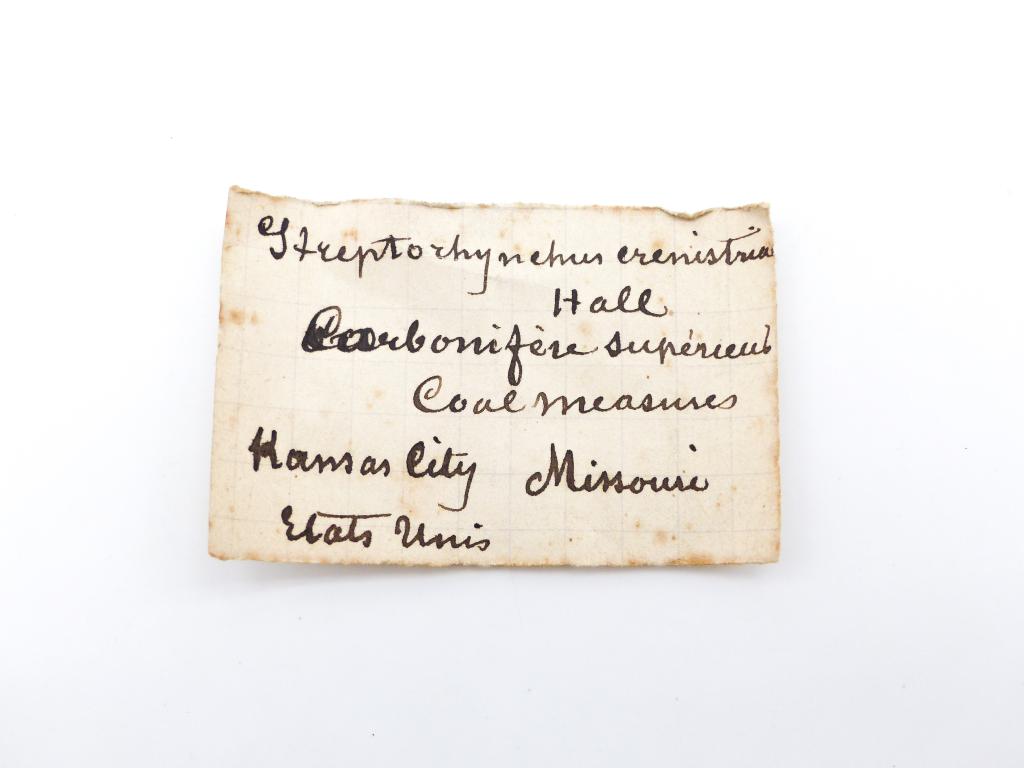 Streptorhynchus crenistria
Hall
Carbonifère supérieur
Coal measures
Kansas City Missouri
Etats Unis